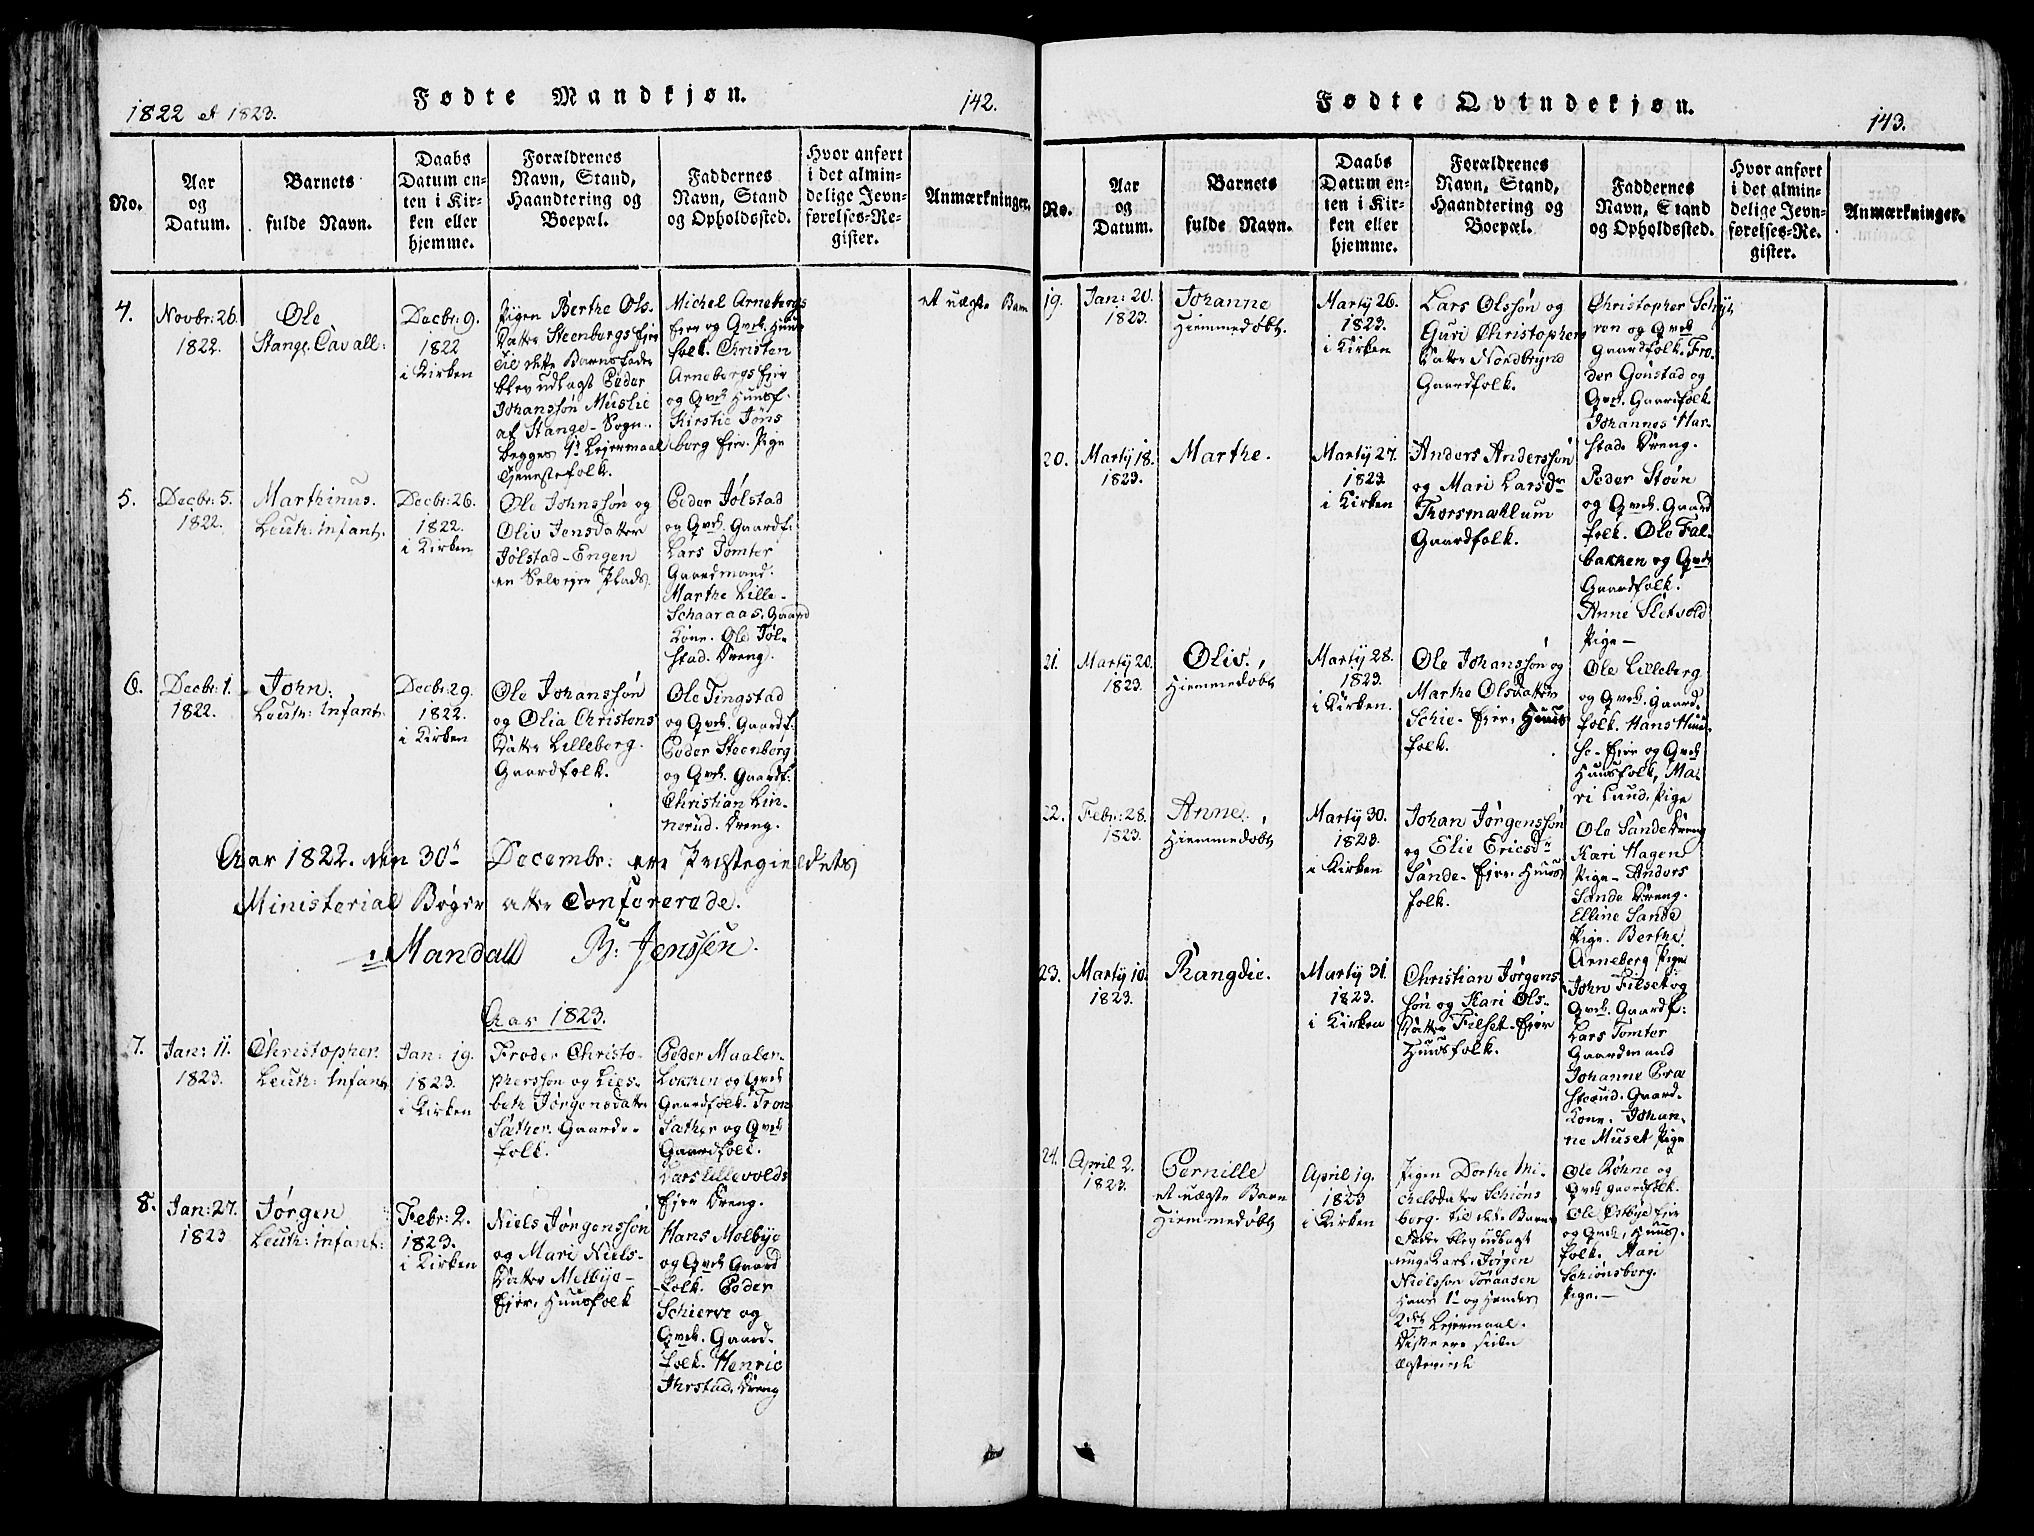 1822 et 1823.
Fødte Mandkjøn.
142.
No.
Aar
og
Datum.
Barnets
fulde Navn.
Daabs
Datum en-
ten i Kir-
ken eller
hjemme.
Forældrenes
Navn, Stand,
Haandtering og
Boepæl.
Faddernes
Navn, Stand
og Opholdssted.
Hvor anført
i det almin-
delige Jevn-
førelses-Re-
gister.
Anmærkninger.
4.
Novbr: 26.
1822.
Ole
Stange Cavall:
Decbr: 9.
1822
i Kirken
Pigen Berthe Ols-
Datter Steenbergs Eje
til dette Barnsfader
blev udlagt Peder
Johanssøn Muslie
af Stange-Sogn.
begges 1te Lejermaal
Tjenestefolk.
Michel Arnebergs
Ejer og Qvd. Huus
folk. Christen
Arnebergs Ejer
og Qvd. Huusf.
Kirstie Jøms
borg Ejer. Pige
et uægte Barn
5.
Decbr: 5.
1822.
Marthinus.
Leuth: Infant.
Decbr: 26.
1822.
i Kirken
Ole Johnssøn og
Oliv Jensdatter
Jølstad-Engen
en Selvejer Plads.
Peder Jølstad
og Qvd. Gaardf.
Lars Tomter
Gaardmand.
Marthe Lille-
Schaaraas. Gaard
Kone. Ole Jøl-
stad. Dreng.
6.
Decbr: 1.
1822.
John:
Leuth: Infant.
Decbr: 29.
1822.
i Kirken
Ole Johanssøn
og Olia Christens
Datter Lilleberg.
Gaardfolk.
Ole Tingstad
og Qvd. Gaardf.
Peder Steenberg
og Qvd. Gaardf:
Christian Lin-
nerud. Dreng.
Aar 1822. den 30te Decembr: ere Præstegieldets
Ministerial Bøger atter Confererede.
Mandall B: Jenssen.
Aar 1823.
7.
Jan: 11.
1823.
Christopher.
Leuth: Infant
Jan: 19.
1823.
i Kirken
Froder Christo-
pherssøn og Lies-
beth Jørgensdatter
Sæther. Gaard-
folk.
Peder Maaler-
Løkken og Qvd.
Gaardfolk. Tron
Sæther og Qvd.
Gaardfolk.
Lars Lillevolds
Ejer Dreng.
8.
Jan: 27.
1823
Jørgen
Leuth: infant:
Febr: 2.
1823.
i Kirken
Niels Jørgenssøn
og Mari Niels-
Datter Melbye-
Ejer. Huusfolk
Hans Molbye
og Qvd. Gaard
folk. Peder
Schierve og
Qvd. Gaard-
folk. Henric
Ihrstad. Dreng
Fødte Qvindekjøn.
143.
No.
Aar
og
Datum.
Barnets
fulde Navn.
Daabs
Datum en-
ten i Kir-
ken eller
hjemme.
Forældrenes
Navn, Stand,
Haandtering og
Boepæl.
Faddernes
Navn, Stand
og Opholdssted.
Hvor anført
i det almin-
delige Jevn-
førelses-Re-
gister.
Anmærkninger.
19.
Jan: 20.
1823.
Johanne
Hiemmedøbt.
Martij 26.
1823.
i Kirken
Lars Olssøn og
Guri Christophers
Datter Nordbrynd
Gaardfolk.
Christopher
ron og Qvd.
Gaardfolk. Fro-
der Gonstad og
Qvd. Gaardfolk.
Johannes Har-
stad. Dreng.
20.
Martij 18.
1823.
Marthe.
Martij 27.
1823.
i Kirken
Anders Anderssøn
og Mari Larsdr
Thorsmæhlum
Gaardfolk.
Peder Støen
og Qvd. Gaard
folk. Ole Fal-
bakken og Qvd.
Gaardfolk.
Anne Sletvold
Pige-
21.
Martij 20.
1823.
Oliv.
Hiemmedøbt
Martij 28.
1823.
i Kirken.
Ole Johanssøn og
Marthe Olsdatter
Schie-Ejer. Huus
folk.
Ole Lilleberg
og Qvd. Gaard-
folk. Hans Huu
se-Ejer og Qvd.
Huusfolk, Ma-
ri Lund. Pige
22.
Febr: 28.
1823.
Anne.
Hiemmedøbt
Martij 30.
1823.
i Kirken
Johan Jørgenssøn
og Elie Ericsdr
Sande-Ejer. Huus
folk.
Ole Sande Dreng
Kari Hagen
Pige-Anders
Sande Dreng.
Elline Sande
Pige. Berthe
Arneberg Pige
23.
Martij 10.
1823.
Rangdie.
Martij 31.
1823.
i Kirken
Christian Jørgens
søn og Kari Ols-
Datter Filset-Ejer
Huusfolk.
John Filset og
Qvd. Gaardf:
Lars Tomter
Gaardmand
Johanne Præ
sterud. Gaard-
Kone. Johan-
ne Muset Pige
24.
April 2.
1823.
Pernille
et uægte Barn
Hiemmedøbt
April 19.
1823
i Kirken
Pigen Dorthe Mi-
chelsdatter Schiøns
berg. til dette Barns
Fader blev udlagt
ungkarl. Jørgen
Nielssøn Toraasen
Hans 1te og Hendes
2det Lejermaal.
Disse ere siden
ægteviede
Ole Røhne og
Qvd. gaardfolk.
Ole Østbye Ejer
og Qvd. Huus-
folk. Mari
Schiønsberg.
Pige.-